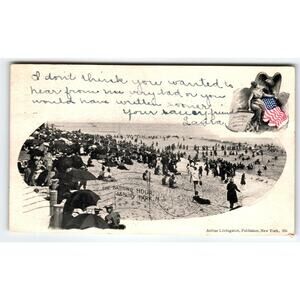 I don't think you wanted to
hear from me very bad or you
would have written sooner
Your saucy friend
THE BATHING HOUR,
ASBURY PARK, N.J.
Arthur Livingston, Publisher, New York,